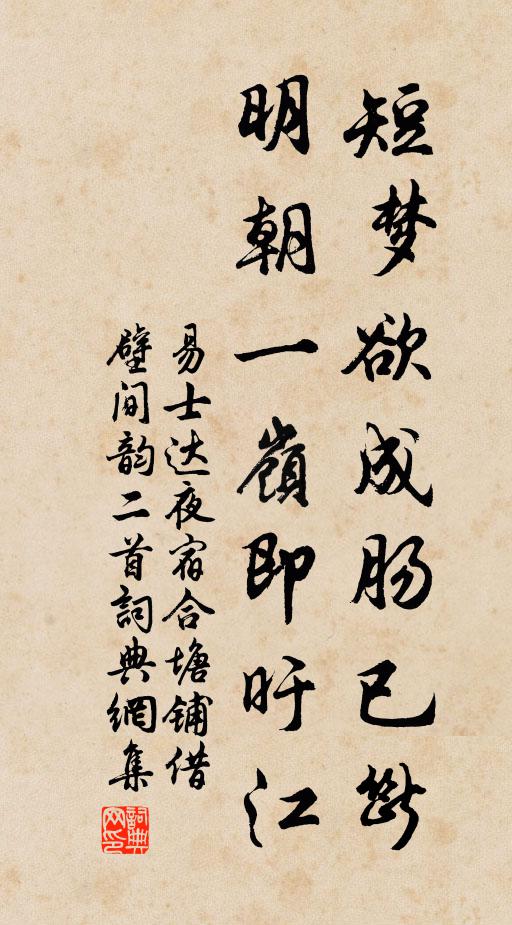 短梦欲成肠已断
明朝一嶺即旴江
易士达夜宿合塘铺借
壁间韵二首詞典網集
詞典网印